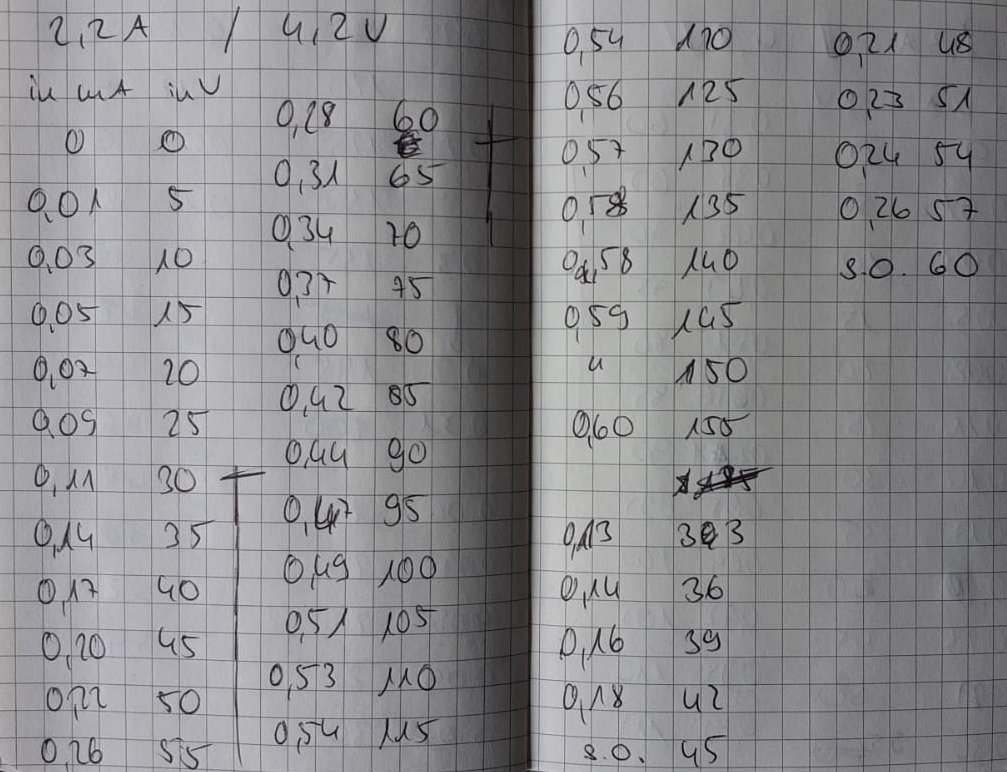 2,2 A / 4,2 V
in mA in V
0 0
0,01 5
0,03 10
0,05 15
0,07 20
0,09 25
0,11 30
0,14 35
0,17 40
0,20 45
0,22 50
0,26 55
0,28 60
0,31 65
0,34 70
0,37 75
0,40 80
0,42 85
0,44 90
0,47 95
0,49 100
0,51 105
0,53 110
0,54 115
0,54 120
0,56 125
0,57 130
0,58 135
0,58 140
0,59 145
" 150
0,60 155
0,13 33
0,14 36
0,16 39
0,18 42
s.o. 45
0,21 48
0,23 51
0,24 54
0,26 57
s.o. 60